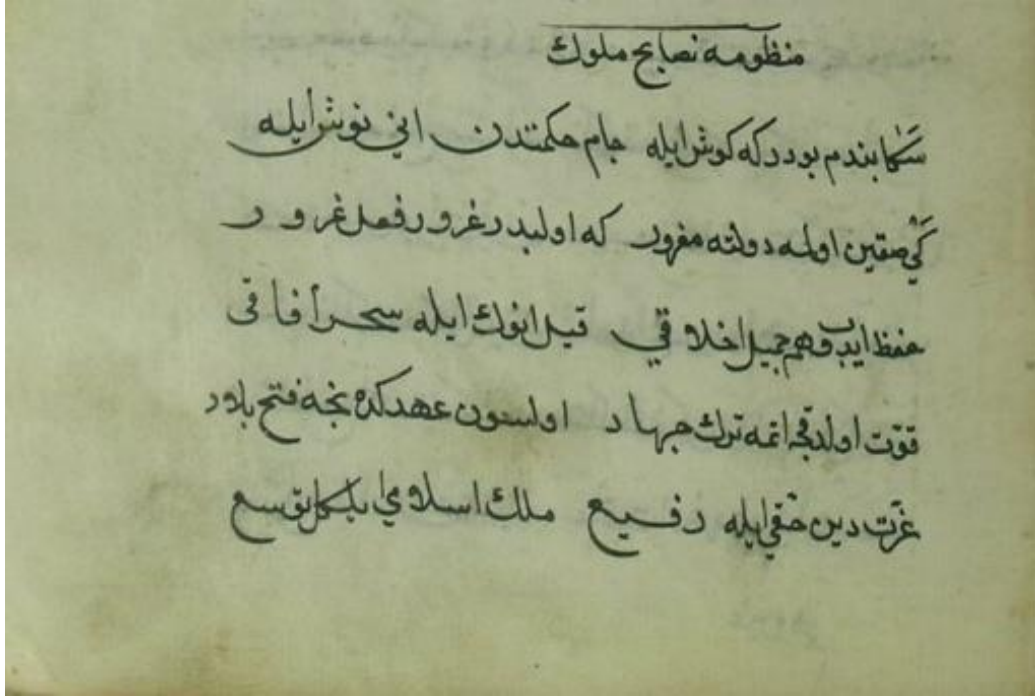 منظومه نصایح ملوك
سكا بندم بودر كه كوش ایله جام حكمتدن انی نوش ایله
كی صقین اولمه دولته مغرور كه اولیدر غرور فعل غرور
حفظ ایدب هم جمیل اخلاقی قیل انوك ایله سحر آفاقی
قوت اولدقجه اتمه ترك جهاد اولسون عهدكده نجه فتح بلاد
عزت دین حقی ایله رفیع ملك اسلامی ایلكل توسیع